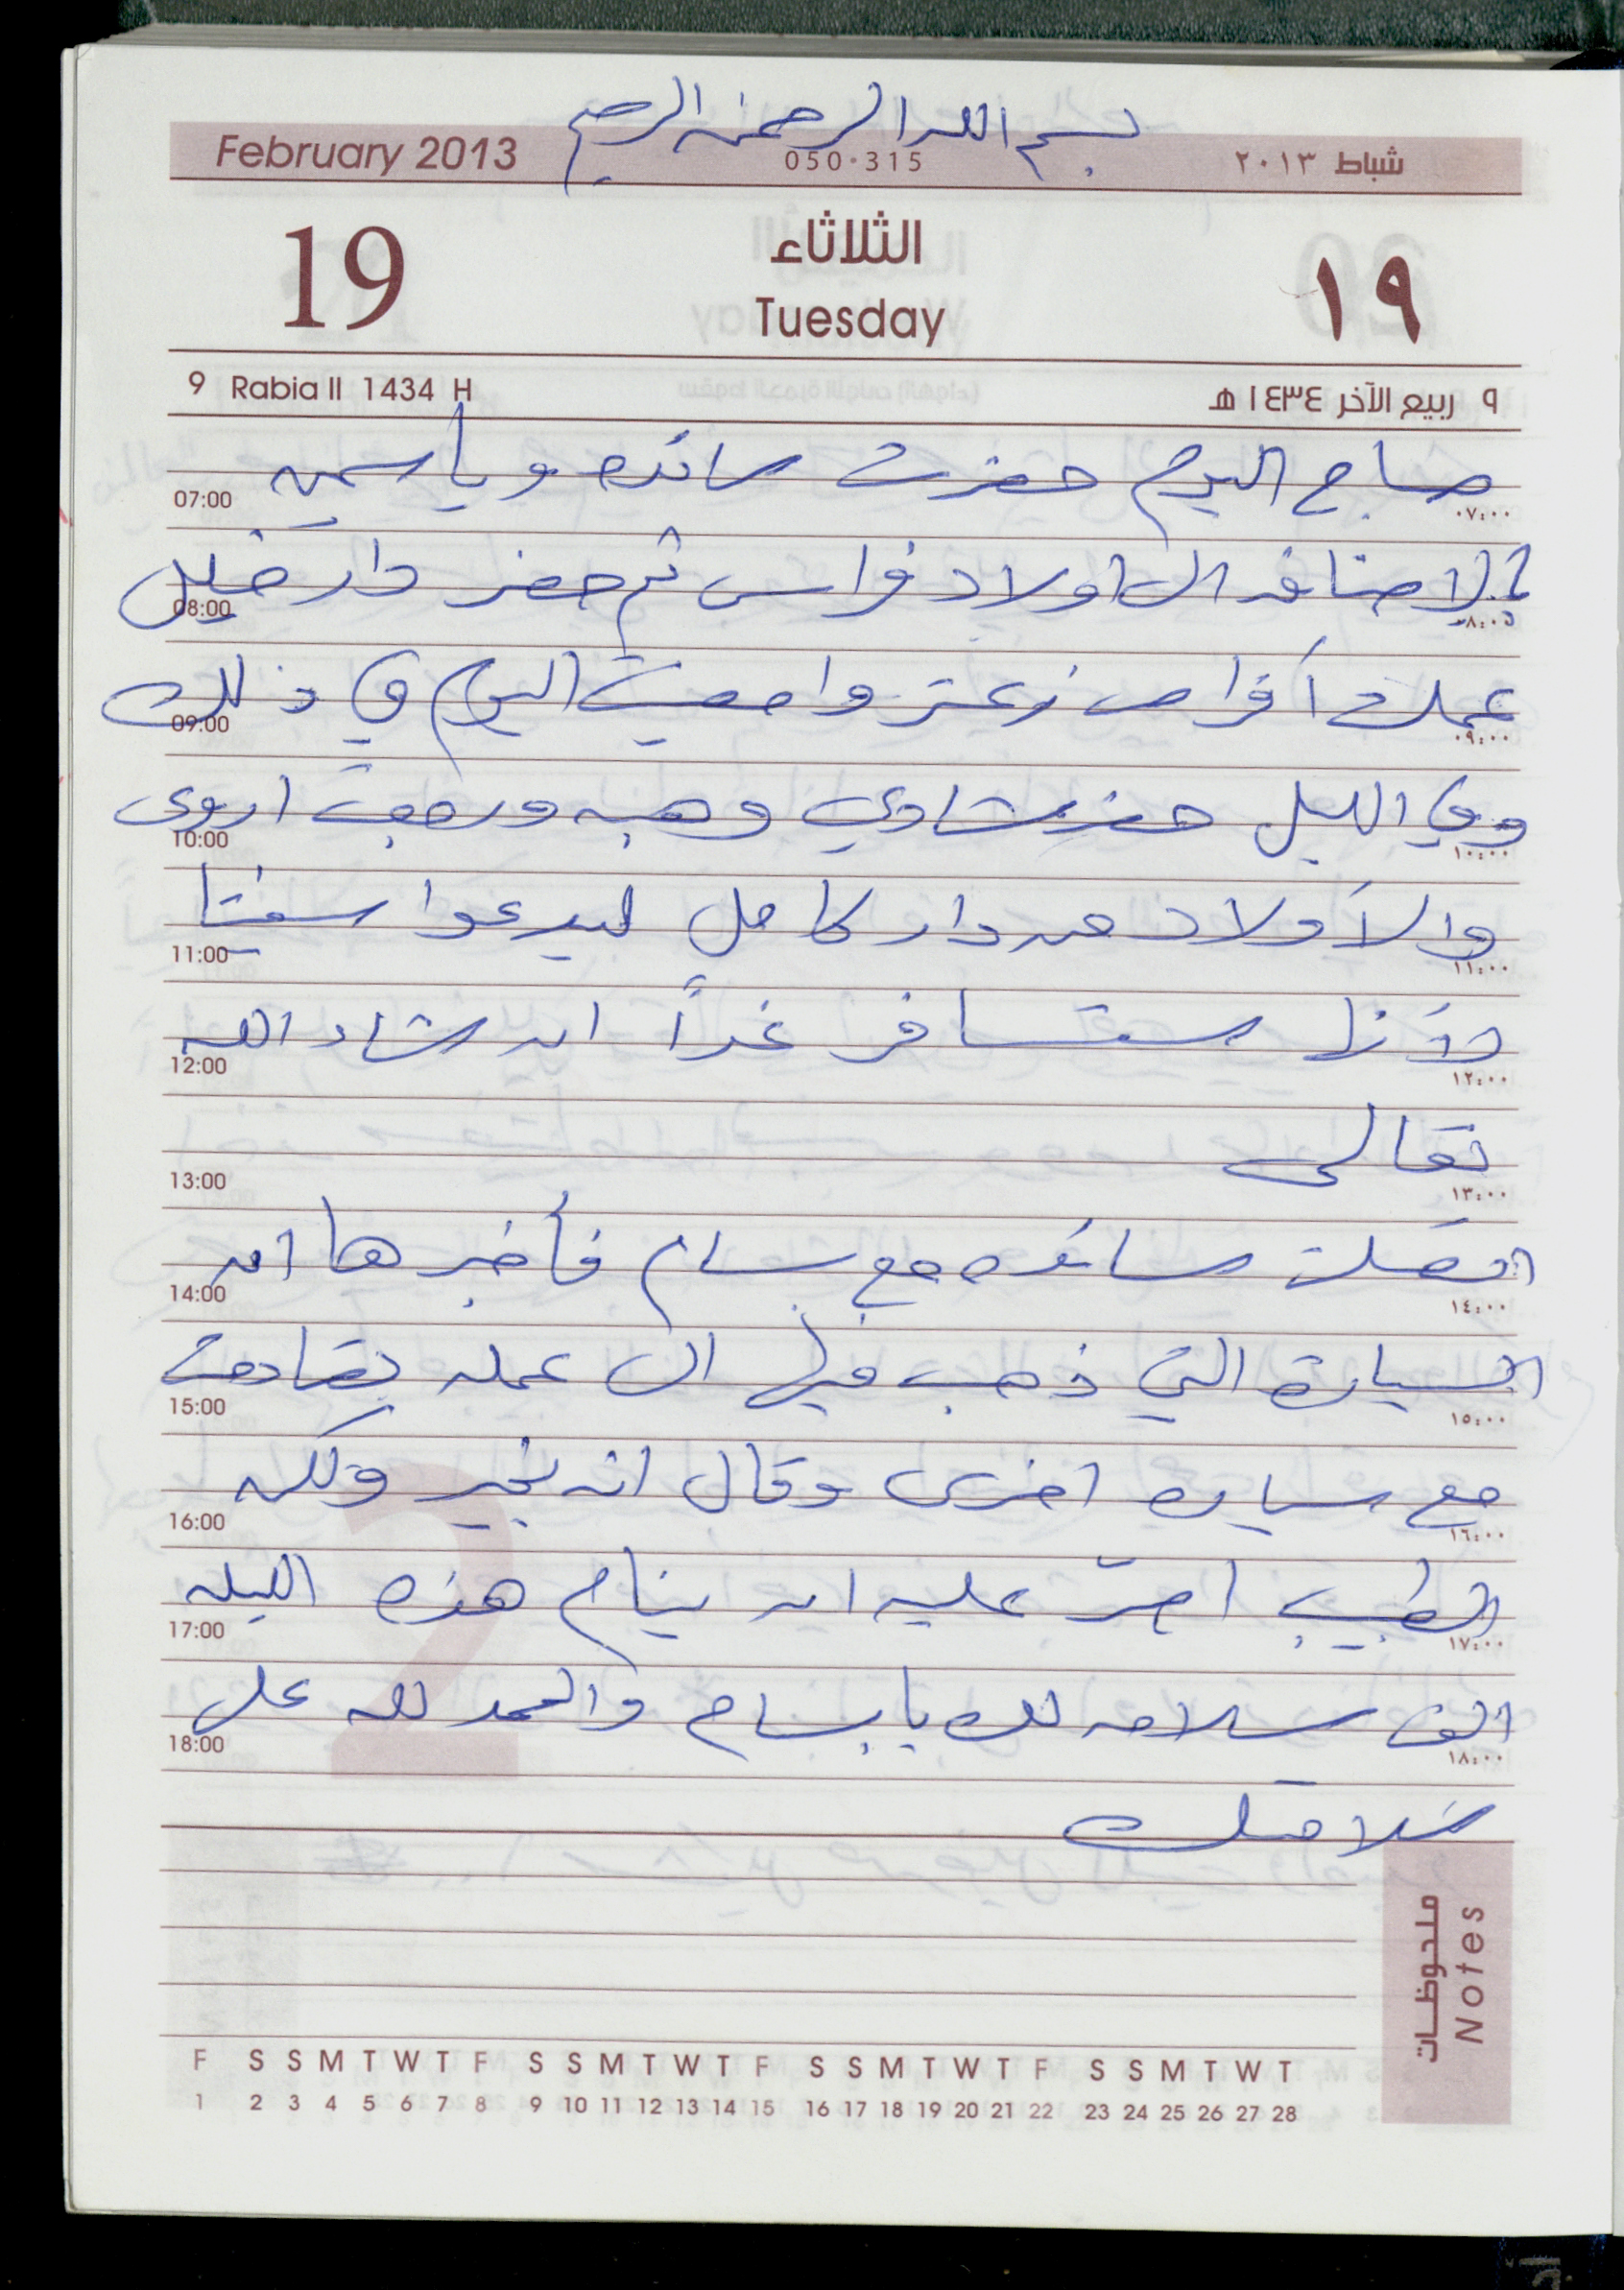 بسم الله الرحمن الرحيم
February 2013 050·315 شباط ٢٠١٣
19 الثلاثاء ١٩
Tuesday
9 Rabia II 1434 H ٩ ربيع الآخر ١٤٣٤ هـ
صباح اليوم حضرت سائده وياسمين
07:00 ٠٧:٠٠
بالاضافه الى اولاد فراس ثم حضر دار خليل
08:00 ٠٨:٠٠
عملت أقراص زعتر وامضيت اليوم في ذلك
09:00 ٠٩:٠٠
وفي الليل حضر شادي وهبه ورجعت اروى
10:00 ١٠:٠٠
والأولاد من دار كامل ليدعوا
11:00 ١١:٠٠
لأنها ستسافر غداً ان شاء الله
12:00 ١٢:٠٠
تعالى
13:00 ١٣:٠٠
اتصلت سائده مع بسام فأخبرها ان
14:00 ١٤:٠٠
السيارة التي ذهب فيها الى عمله تصادمت
15:00 ١٥:٠٠
مع سياره اخرى وقال انه بخير ولكن
16:00 ١٦:٠٠
الطبيب اصرّ عليه ان ينام هذه الليله
17:00 ١٧:٠٠
الف سلامه لك يا بسام والحمد لله على
18:00 ١٨:٠٠
سلامتك
ملحوظات
Notes
F S S M T W T F S S M T W T F S S M T W T F S S M T W T
1 2 3 4 5 6 7 8 9 10 11 12 13 14 15 16 17 18 19 20 21 22 23 24 25 26 27 28